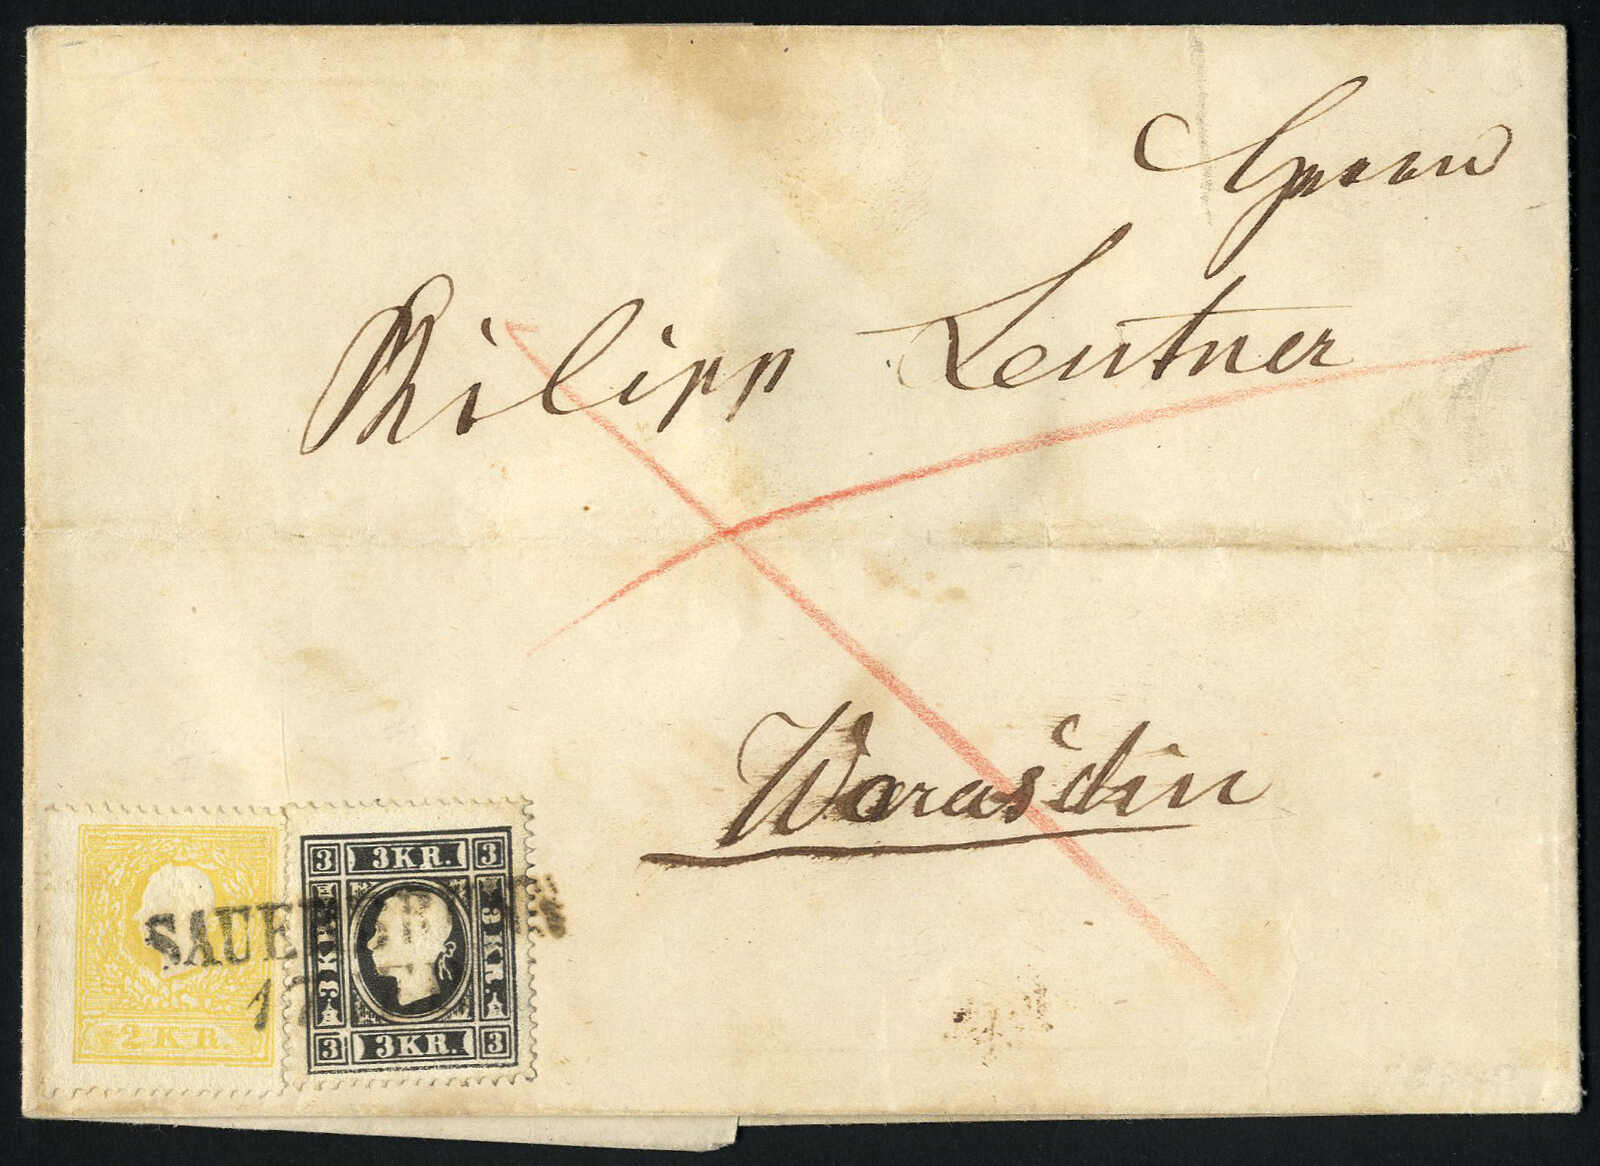 Herrn
Philipp Leutner
Warasdin
2 KR.
3 3KR. 3
3 KR.
3 KR.
3 3KR. 3
17